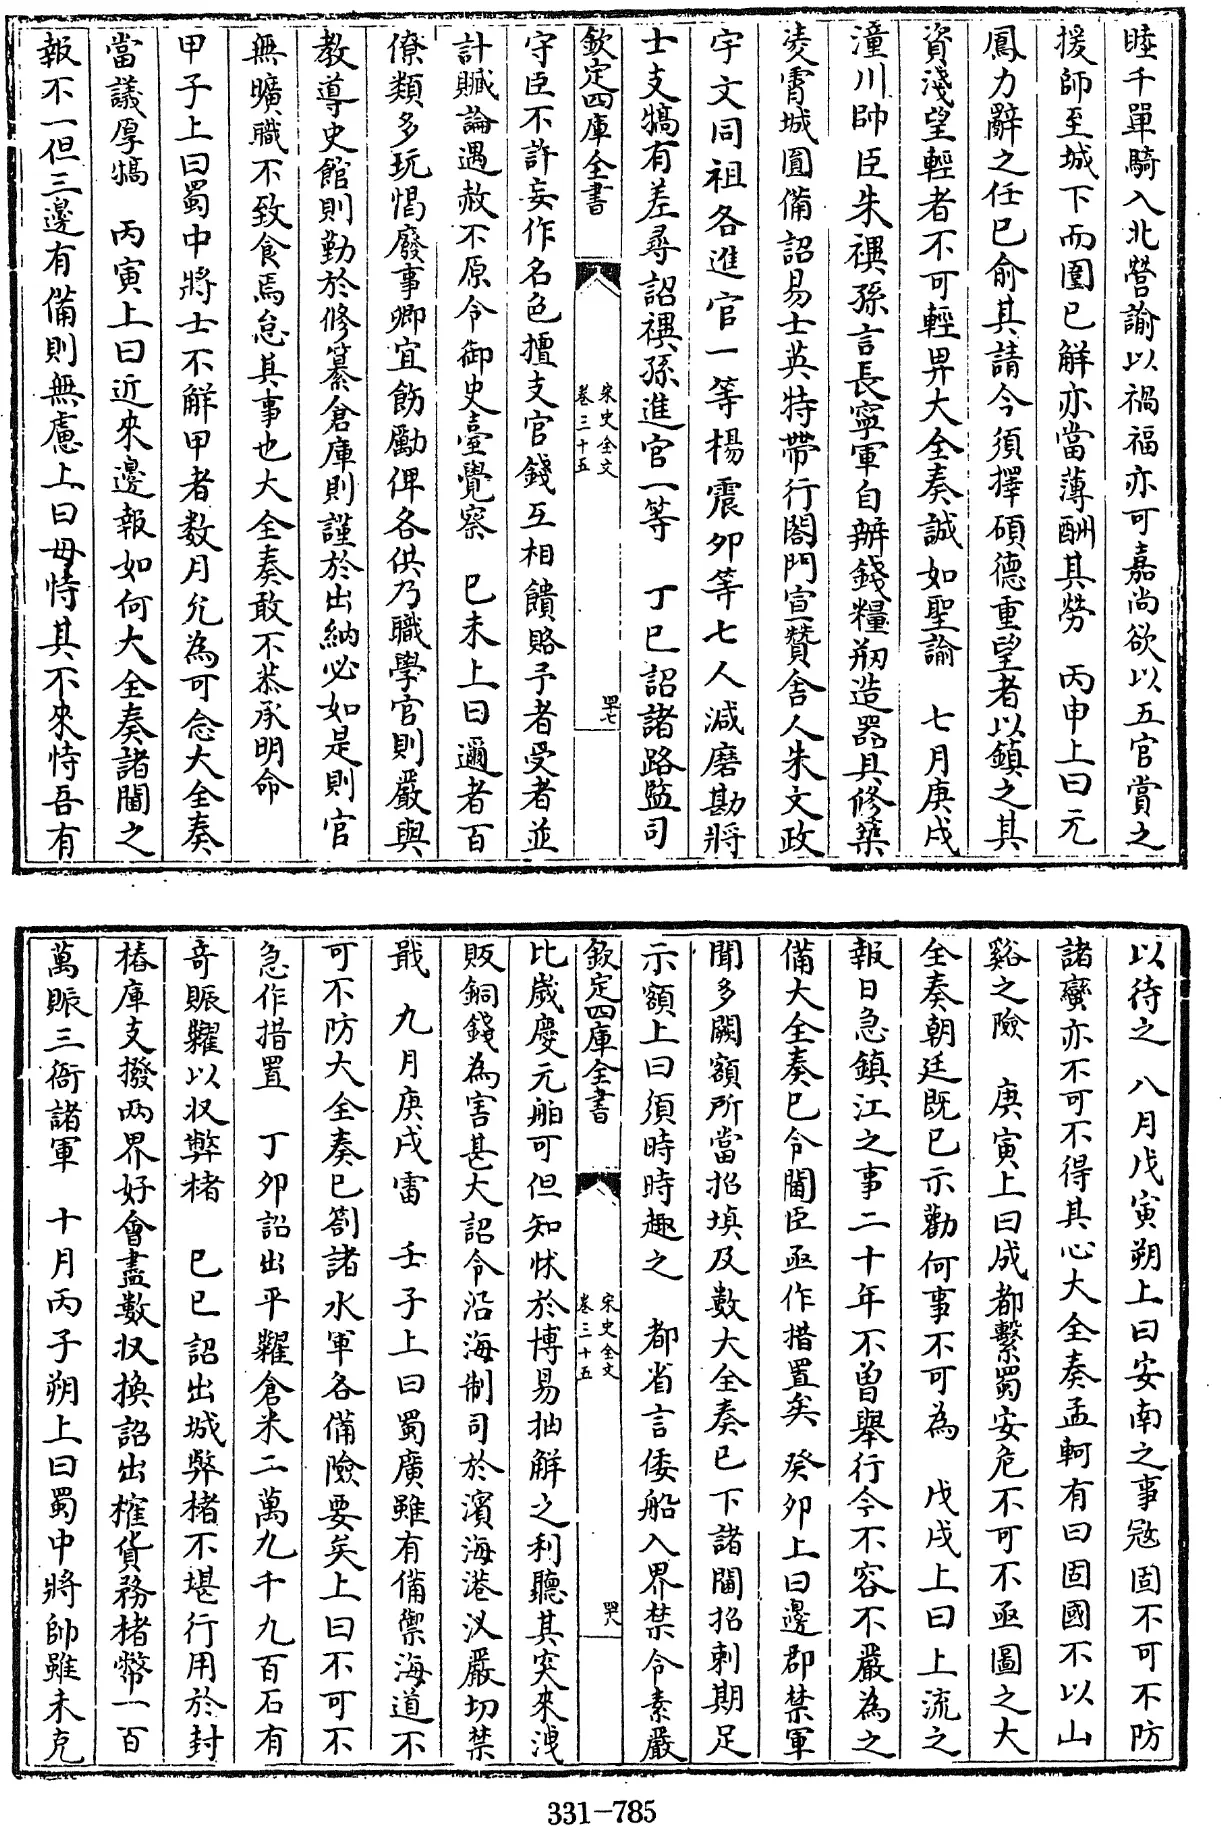 睦千單騎入北營諭以禍福亦可嘉尚欲以五官賞之
援師至城下而圍已解亦當薄酬其勞　丙申上曰元
鳳力辭之任已俞其請今須擇碩德重望者以鎮之其
資淺望輕者不可輕畀大全奏誠如聖諭　七月庚戌
潼川帥臣朱禩孫言長寧軍自辦錢糧剏造器具修築
凌霄城圓備詔易士英特帶行閤門宣贊舍人朱文政
宇文同祖各進官一等楊震卯等七人減磨勘將
士支犒有差尋詔禩孫進官一等　丁巳詔諸路監司
欽定四庫全書
宋史全文
卷三十五
四十七
守臣不許妄作名色擅支官錢互相饋賂予者受者並
計贓論遇赦不原令御史臺覺察　己未上曰邇者百
僚類多玩愒廢事卿宜飭勵俾各供乃職學官則嚴與
教導史館則勤於修纂倉庫則謹於出納必如是則官
無曠職不致食焉怠其事也大全奏敢不恭承明命
甲子上曰蜀中將士不解甲者数月允為可念大全奏
當議厚犒　丙寅上曰近來邊報如何大全奏諸閫之
報不一但三邊有備則無慮上曰毋恃其不來恃吾有
以待之　八月戊寅朔上曰安南之事冦固不可不防
諸蠻亦不可不得其心大全奏孟軻有曰固國不以山
谿之險　庚寅上曰成都繫蜀安危不可不亟圖之大
全奏朝廷既已示勸何事不可為　戊戌上曰上流之
報日急鎮江之事二十年不曾舉行今不容不嚴為之
備大全奏已令閫臣亟作措置矣　癸卯上曰邊郡禁軍
聞多闕額所當招填及數大全奏已下諸閫招刺期足
示額上曰須時時趣之　都省言倭船入界禁令素嚴
欽定四庫全書
宋史全文
卷三十五
四十八
比歲慶元舶可但知怵於博易抽解之利聽其突來洩
販銅錢為害甚大詔令沿海制司於濱海港汊嚴切禁
戢　九月庚戌雷　壬子上曰蜀廣雖有備禦海道不
可不防大全奏已劄諸水軍各備險要矣上曰不可不
急作措置　丁卯詔出平糴倉米二萬九千九百石有
奇賑糶以收弊楮　己巳詔出城弊楮不堪行用於封
樁庫支撥两界好會盡數收換詔出榷貨務楮幣一百
萬賑三衙諸軍　十月丙子朔上曰蜀中將帥雖未克
331-785